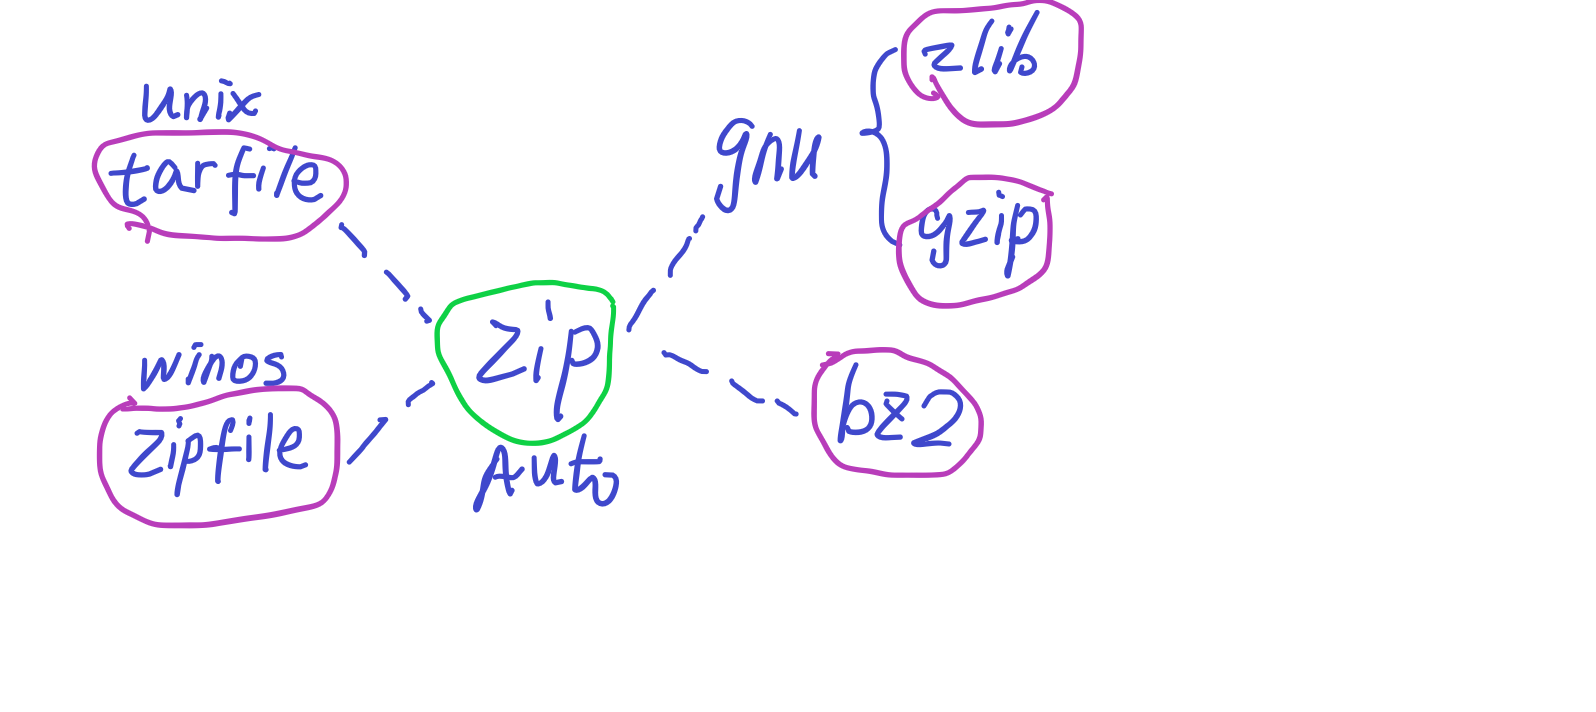 unix
tarfile
winos
zipfile
zip
Auto
gnu
zlib
gzip
bz2